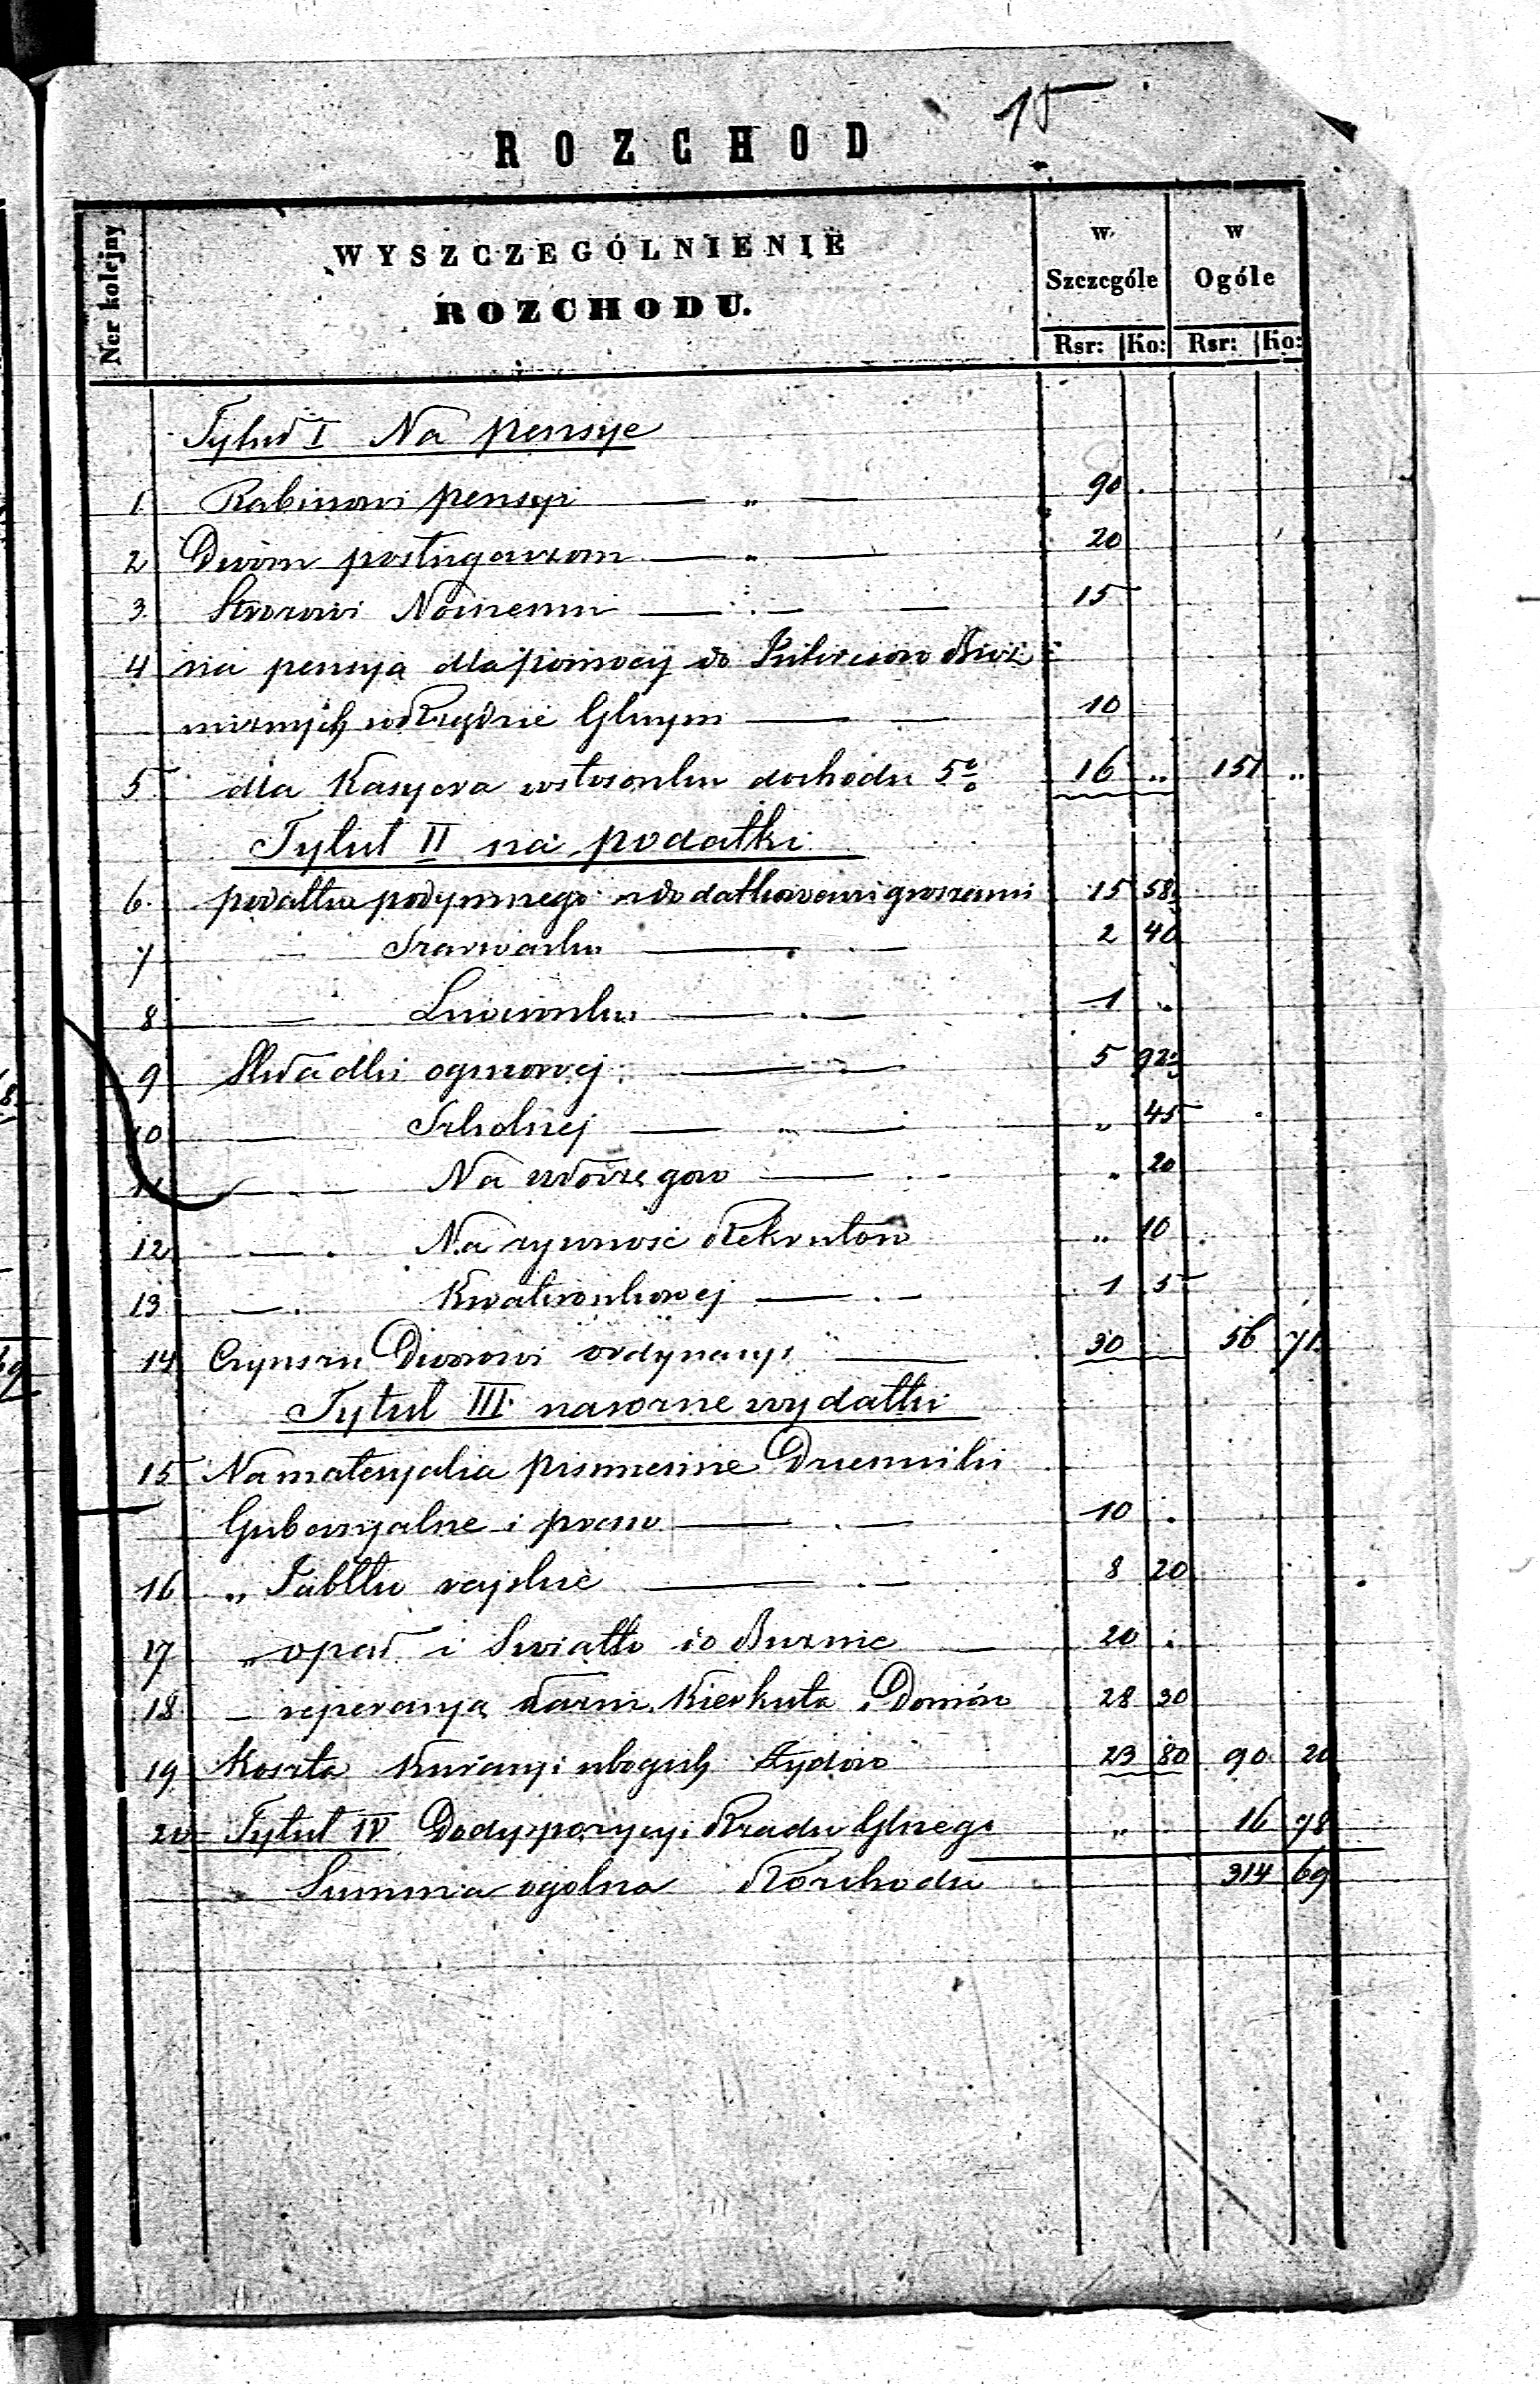 15
ROZCHOD
Ner kolejny
WYSZCZEGÓLNIENIE
ROZCHODU.
w Szczególe
w Ogóle
Rsr: Ko: Rsr: Ko:
Tytuł I Na pensye
1. Rabinowi pensyi — " — 90
2 Dwóm posługaczom — " — 20
3. Stróżowi Nocnemu — 15
4 na pensyą dla pomocy do Interesów Bóż
niznych w Urzędzie Gmnym — 10
5 dla Kasyera w stosunku dochodu 5% 16 " 151 "
Tytuł II na podatki
6. podatku podymnego z dodatkowemi groszami 15 58½
7 — Szarwarku — 2 40
8 — Liwerunku — 1 "
9 Składki ogniowej — 5 92½
10 — Szkolnej — " — " 45
11 — Na włóczęgow — " 20
12 — Na żywność Rekrutów " 10
13 — Kwaterunkowej — 1 5
14 Czynszu Dworowi ordynacyi — 30 56 71
Tytuł III. na różne wydatki
15 Na materyalia piśmienne Dzienniki
Gubernyalne i praw — 10
16 " Tabelle — 8 20
17 " opał i Światło do Bużnic — 20
18 — reperacyą Łaźni, Kierkuta, Domów 28 20
19 Koszta Kuracyi ubogich Żydów 23 80 90 20
20 Tytuł IV Do dyspozycyi Rządu Głnego " 16 78
Summa ogólna Rozchodu 314 69